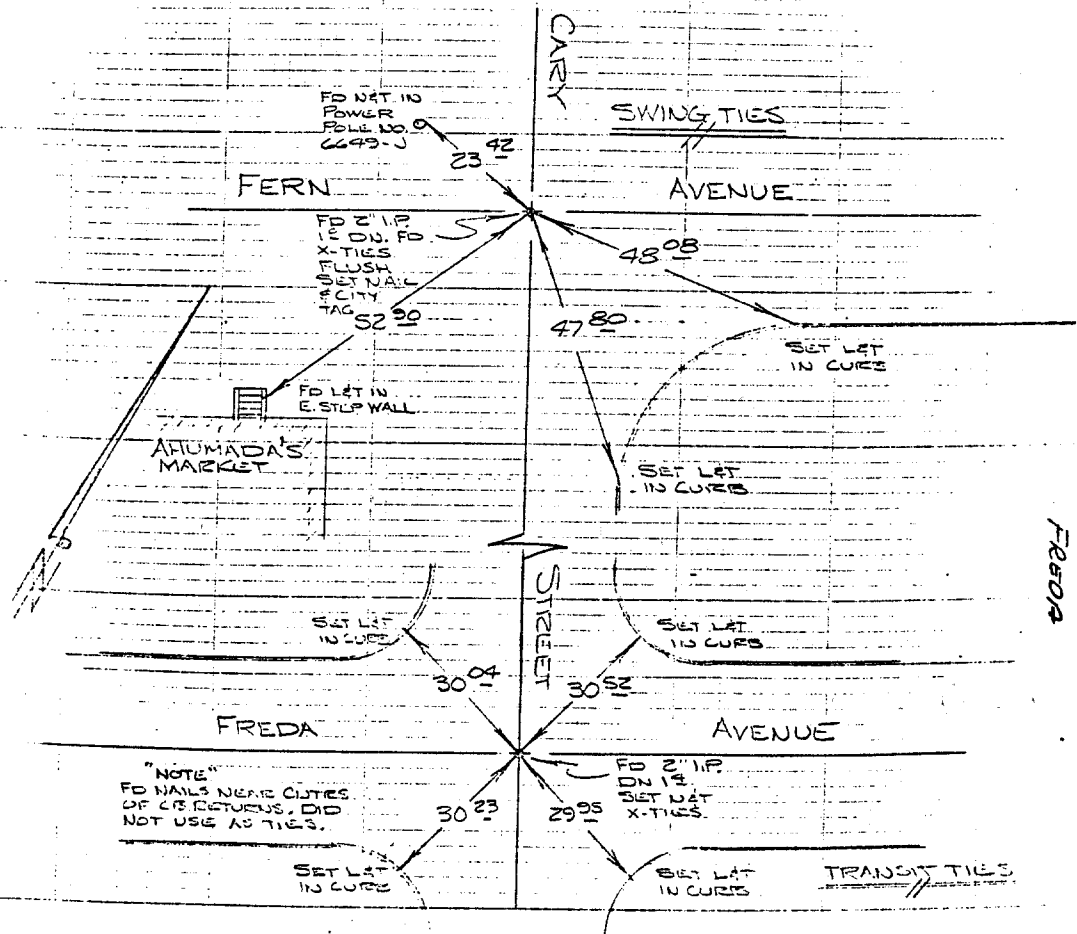 CARY
SWING TIES
FD N&T IN
POWER
POLE NO.
6649-J
23 42
FERN AVENUE
FD 2" I.P.
DN. FD
X-TIES
FLUSH
SET NAIL
& CITY
TAG
48 08
52 90
47 80
SET L&T
IN CURB
FD L&T IN
E. STEP WALL
AHUMADA'S
MARKET
SET L&T
IN CURB
FREDA
STREET
SET L&T
IN CURB
SET L&T
IN CURB
30 04
30 52
FREDA AVENUE
"NOTE"
FD NAILS NEAR CNTRS
OF CB RETURNS, DID
NOT USE AS TIES.
FD 2" I.P.
DN
SET N&T
X-TIES
30 23
29 95
SET L&T
IN CURB
SET L&T
IN CURB
TRANSIT TIES